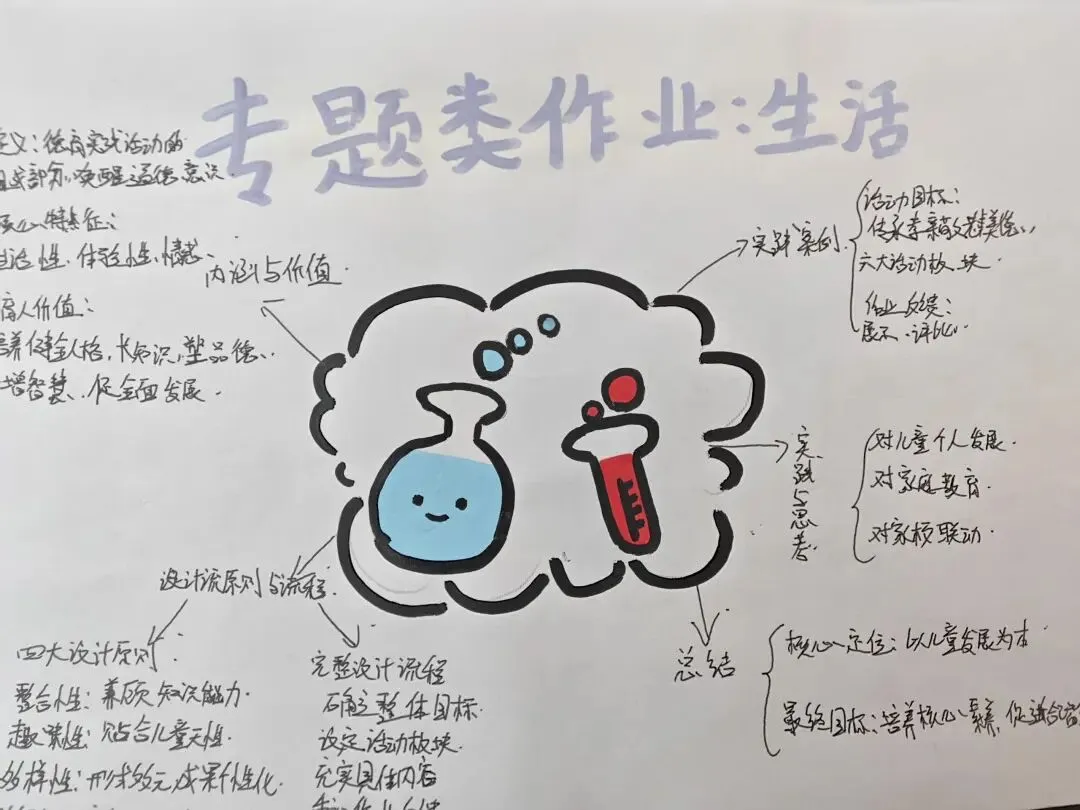 专题类作业:生活
义:德育实践活动的
组成部分,唤醒道德意识.
核心特征:
生活性、体验性、情感、
育人价值:
培养健全人格,长知识,塑品德、
增智慧、促全面发展.
内涵与价值.
实践案例.
活动目标:
传承孝亲敬老美德、
六大活动板块.
作业反馈:
展示、评比.
实践与思考.
对儿童个人发展.
对家庭教育.
对家校联动.
设计流原则与流程.
四大设计原则.
整合性:兼顾知识能力.
趣味性:贴合儿童天性.
多样性:形式多元,成果个性化.
完整设计流程
确立整体目标.
设定活动板块.
充实具体内容
总结
核心定位:以儿童发展为本.
最终目标:培养核心素养,促进